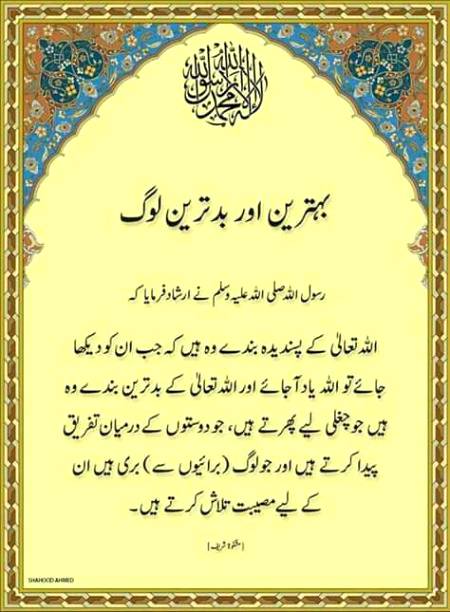 لا اله الا الله محمد رسول الله
بہترین اور بدترین لوگ
رسول اللہ صلی اللہ علیہ وسلم نے ارشاد فرمایا کہ
اللہ تعالیٰ کے پسندیدہ بندے وہ ہیں کہ جب ان کو دیکھا
جائے تو اللہ یاد آ جائے اور اللہ تعالیٰ کے بدترین بندے وہ
ہیں جو چغلی لیے پھرتے ہیں، جو دوستوں کے درمیان تفریق
پیدا کرتے ہیں اور جو لوگ (برائیوں سے) بری ہیں ان
کے لیے مصیبت تلاش کرتے ہیں۔
[مشکوٰۃ شریف]
SHAHOOD AHMED